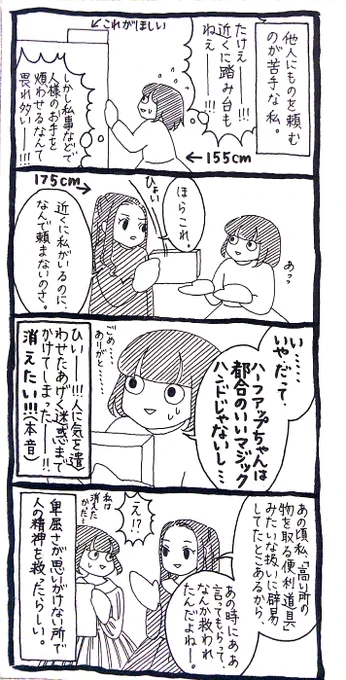 他人にものを頼む
のが苦手な私。
←これがほしい
たけぇ――!!!
近くに踏み台も
ねえ――!!!
しかし私事などで
人様のお手を
煩わせるなんて
畏れ多い――!!!
←155cm
175cm→
ほらこれ。
ひょい
あっっ
近くに私がいるのに、
なんで頼まないのさ。
い……
いやだって、
ハーフアップちゃんは
都合のいいマジック
ハンドじゃないし…
ごめ……
ありがと……
ひぃ――!!!人に気を遣
わせたあげく迷惑まで
かけてしまった――!!
消えたい!!!(本音)
あの頃私、「高い所の
物を取る便利道具」
みたいな扱いに辟易
してたとこあるから、
あの時にああ
言ってもらって、
なんか救われ
たんだよねー。
え!?
私は
消えた
かった…
卑屈さが思いがけない所で
人の精神を救ったらしい。